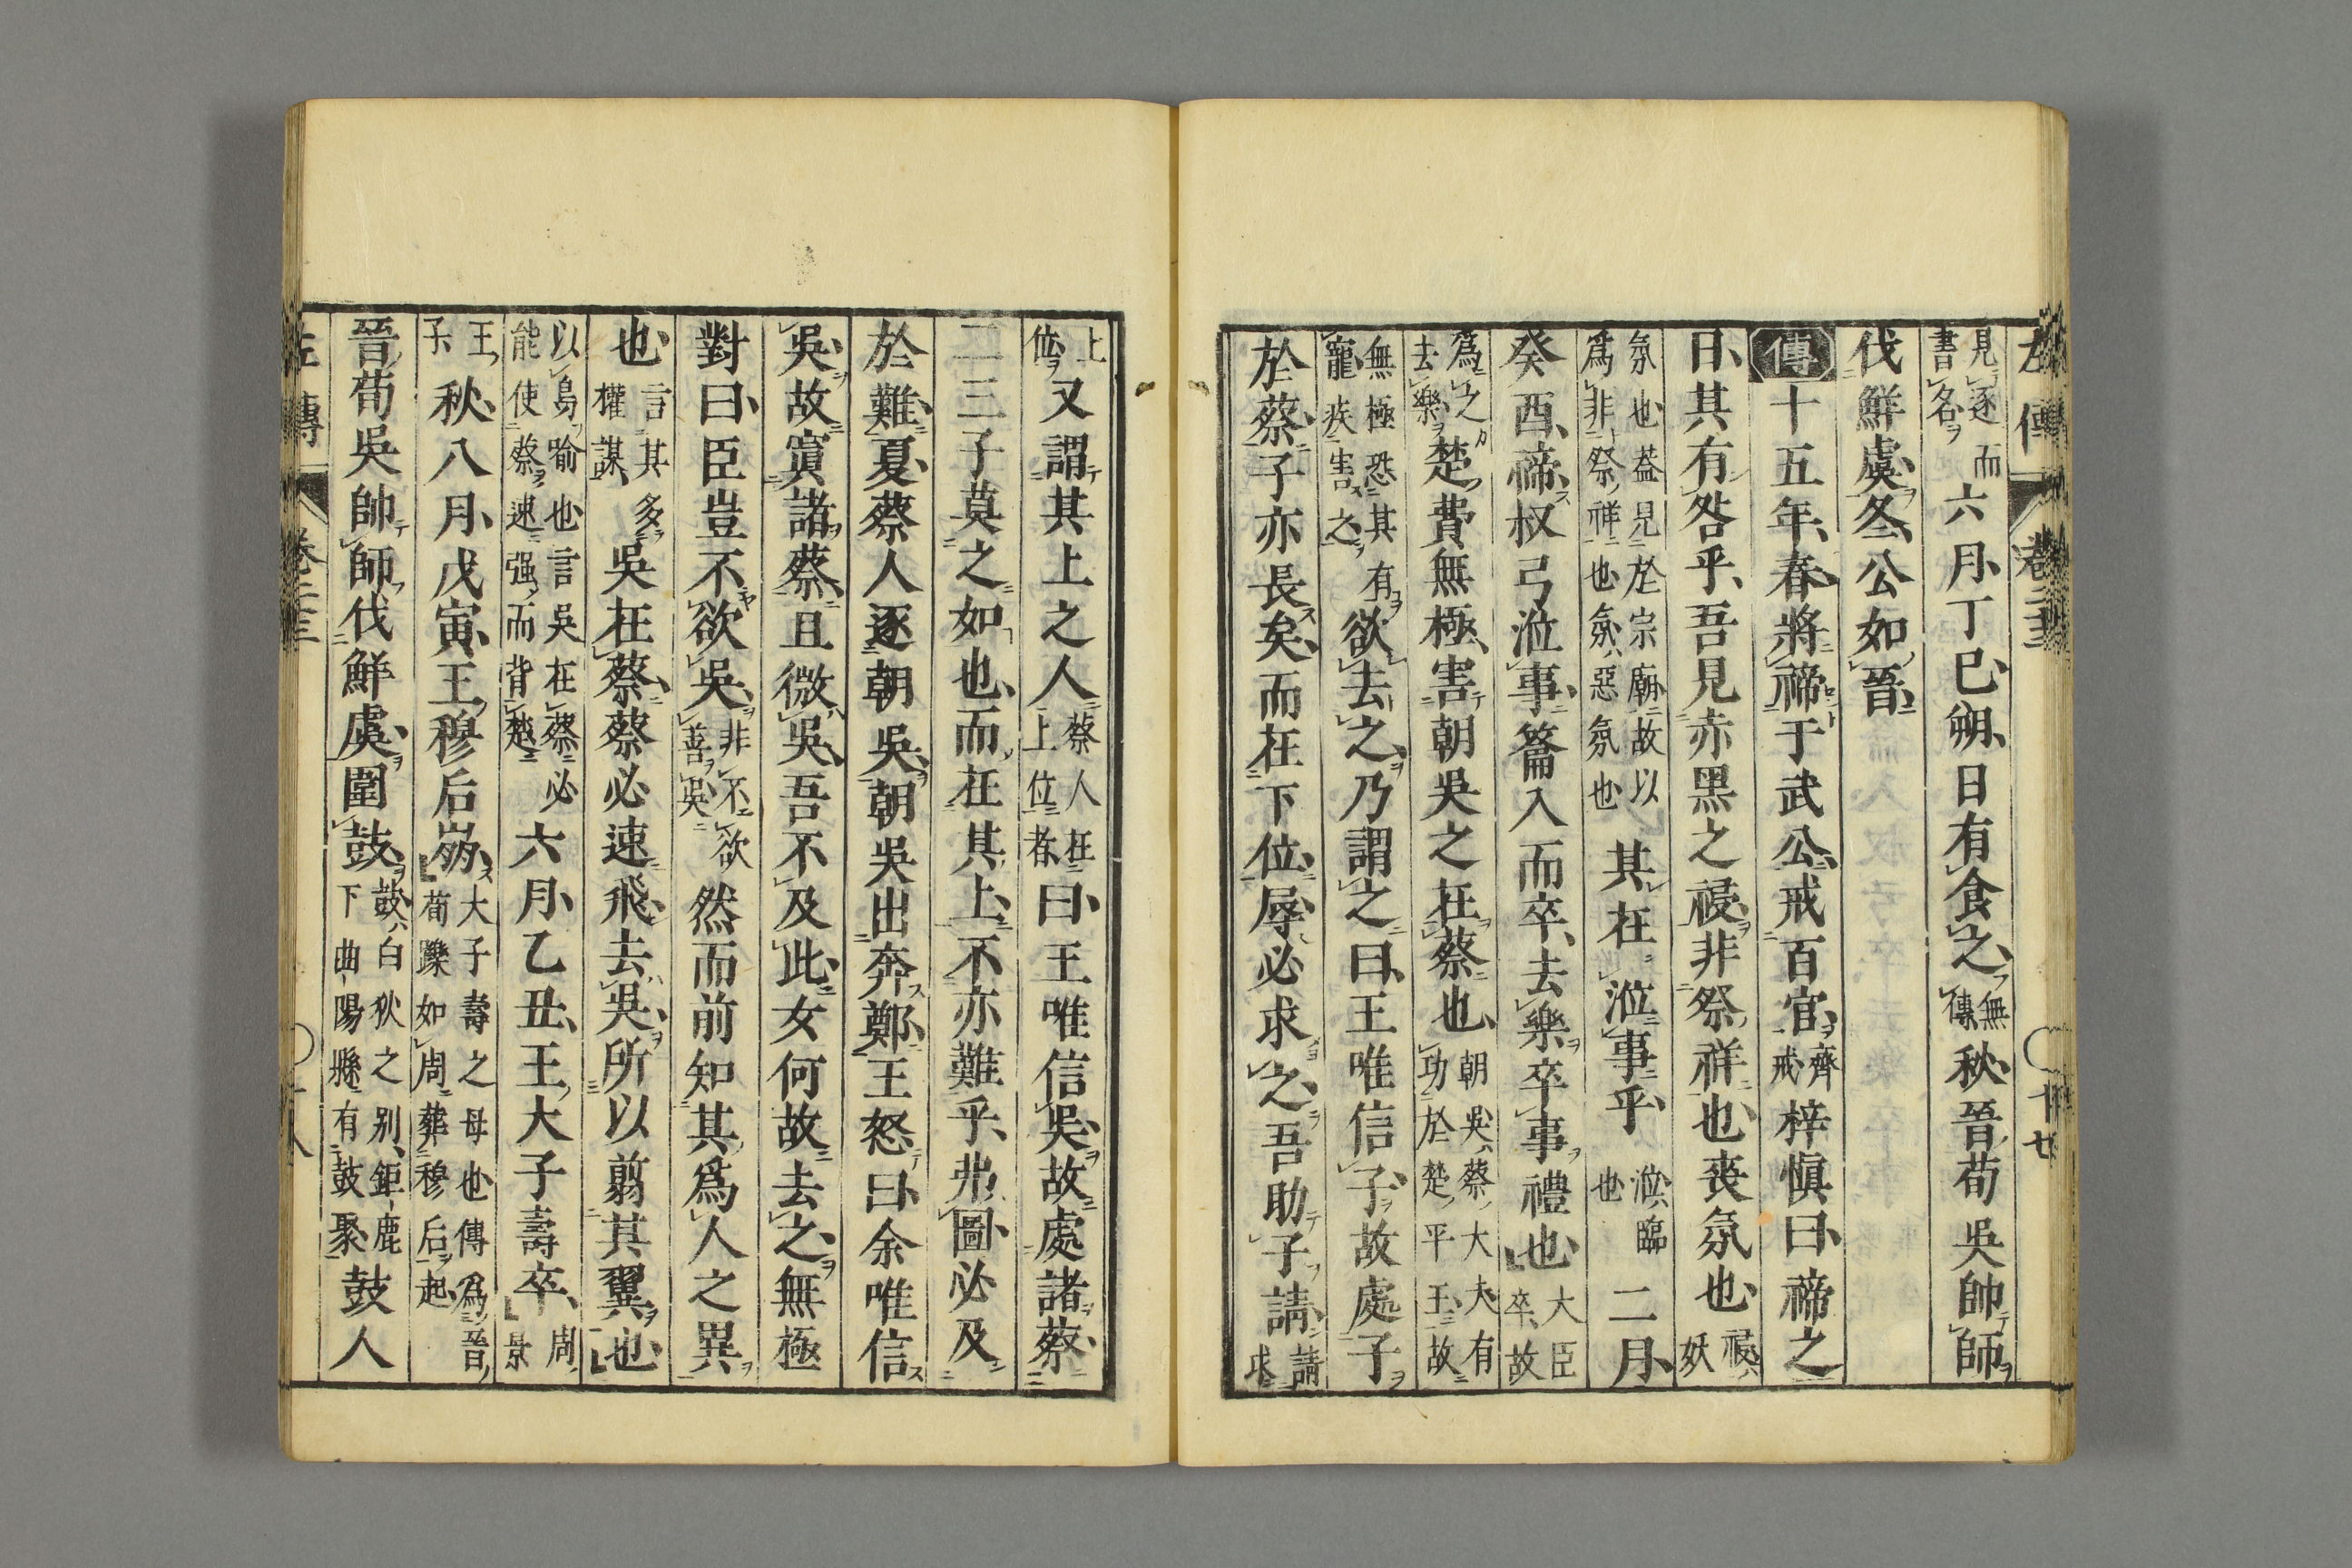 左傳 卷二十三 十七
見逐而書名六月丁巳朔日有食之無傳秋晉荀吳帥師
伐鮮虞冬公如晉
傳十五年春將禘于武公戒百官齊戒梓愼曰禘之
日其有咎乎吾見赤黑之祲非祭祥也喪氛也祲妖
氛也葢見於宗廟故以爲非祭祥也氛惡氛也其在涖事乎涖臨也二月
癸酉禘叔弓涖事籥入而卒去樂卒事禮也大臣卒故
爲之去樂楚費無極害朝吳之在蔡也朝吳蔡大夫有功於楚平王故
無極恐其有寵疾害之欲去之乃謂之曰王唯信子故處子
於蔡子亦長矣而在下位辱必求之吾助子請請求
上位又謂其上之人蔡人在上位者曰王唯信吳故處諸蔡
二三子莫之如也而在其上不亦難乎弗圖必及
於難夏蔡人逐朝吳朝吳出奔鄭王怒曰余唯信
吳故寘諸蔡且微吳吾不及此女何故去之無極
對曰臣豈不欲吳非不欲善吳然而前知其爲人之異
也言其多權謀吳在蔡蔡必速飛去吳所以翦其翼也
以鳥喻也言吳在蔡必能使蔡速强而背楚六月乙丑王大子壽卒周景
王子秋八月戊寅王穆后崩大子壽之母也傳爲晉荀躒如周葬穆后起
晉荀吳帥師伐鮮虞圍鼓鼓白狄之別鉅鹿下曲陽縣有鼓聚鼓人
左傳 卷二十三 十八